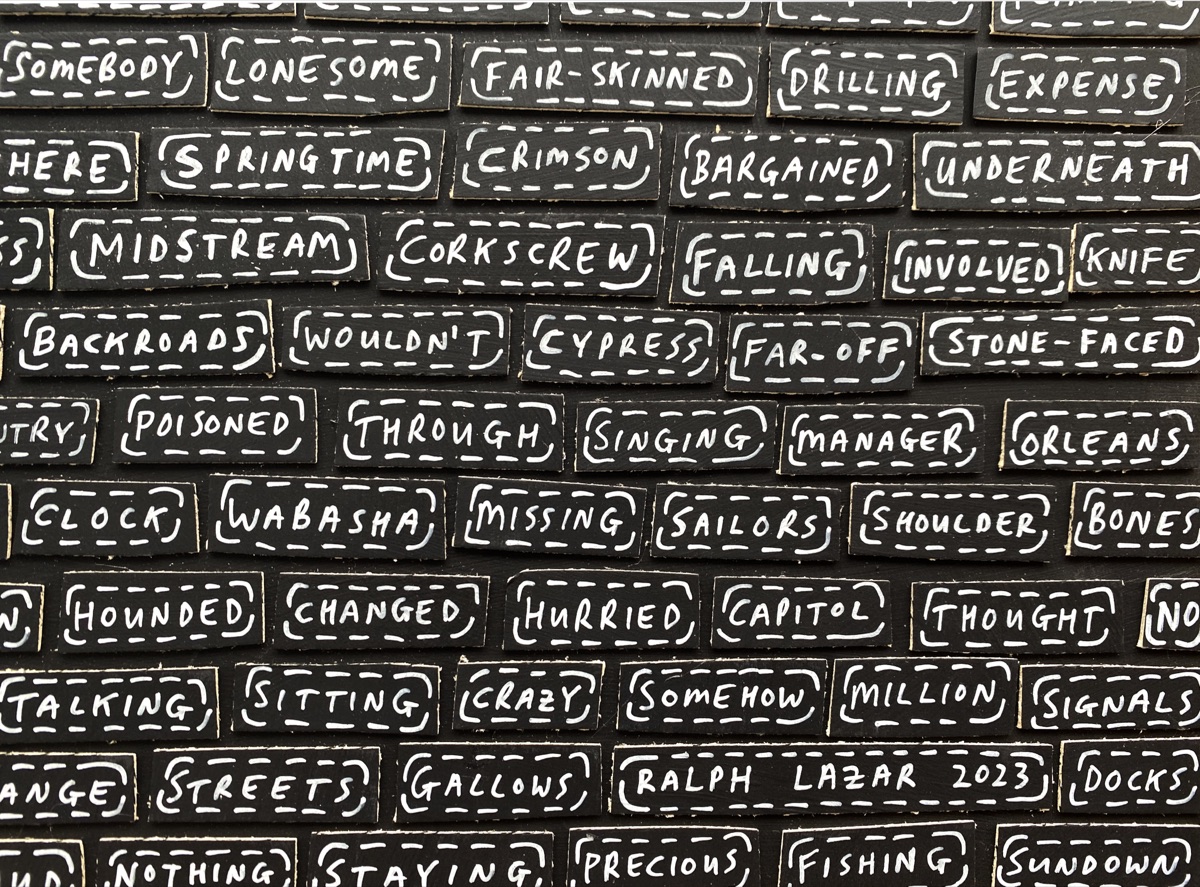 SOMEBODY LONESOME FAIR-SKINNED DRILLING EXPENSE
HERE SPRINGTIME CRIMSON BARGAINED UNDERNEATH
MIDSTREAM CORKSCREW FALLING INVOLVED KNIFE
BACKROADS WOULDN'T CYPRESS FAR-OFF STONE-FACED
POISONED THROUGH SINGING MANAGER ORLEANS
CLOCK WABASHA MISSING SAILORS SHOULDER BONES
HOUNDED CHANGED HURRIED CAPITOL THOUGHT NO
TALKING SITTING CRAZY SOMEHOW MILLION SIGNALS
ANGE STREETS GALLOWS RALPH LAZAR 2023 DOCKS
NOTHING STAYING PRECIOUS FISHING SUNDOWN